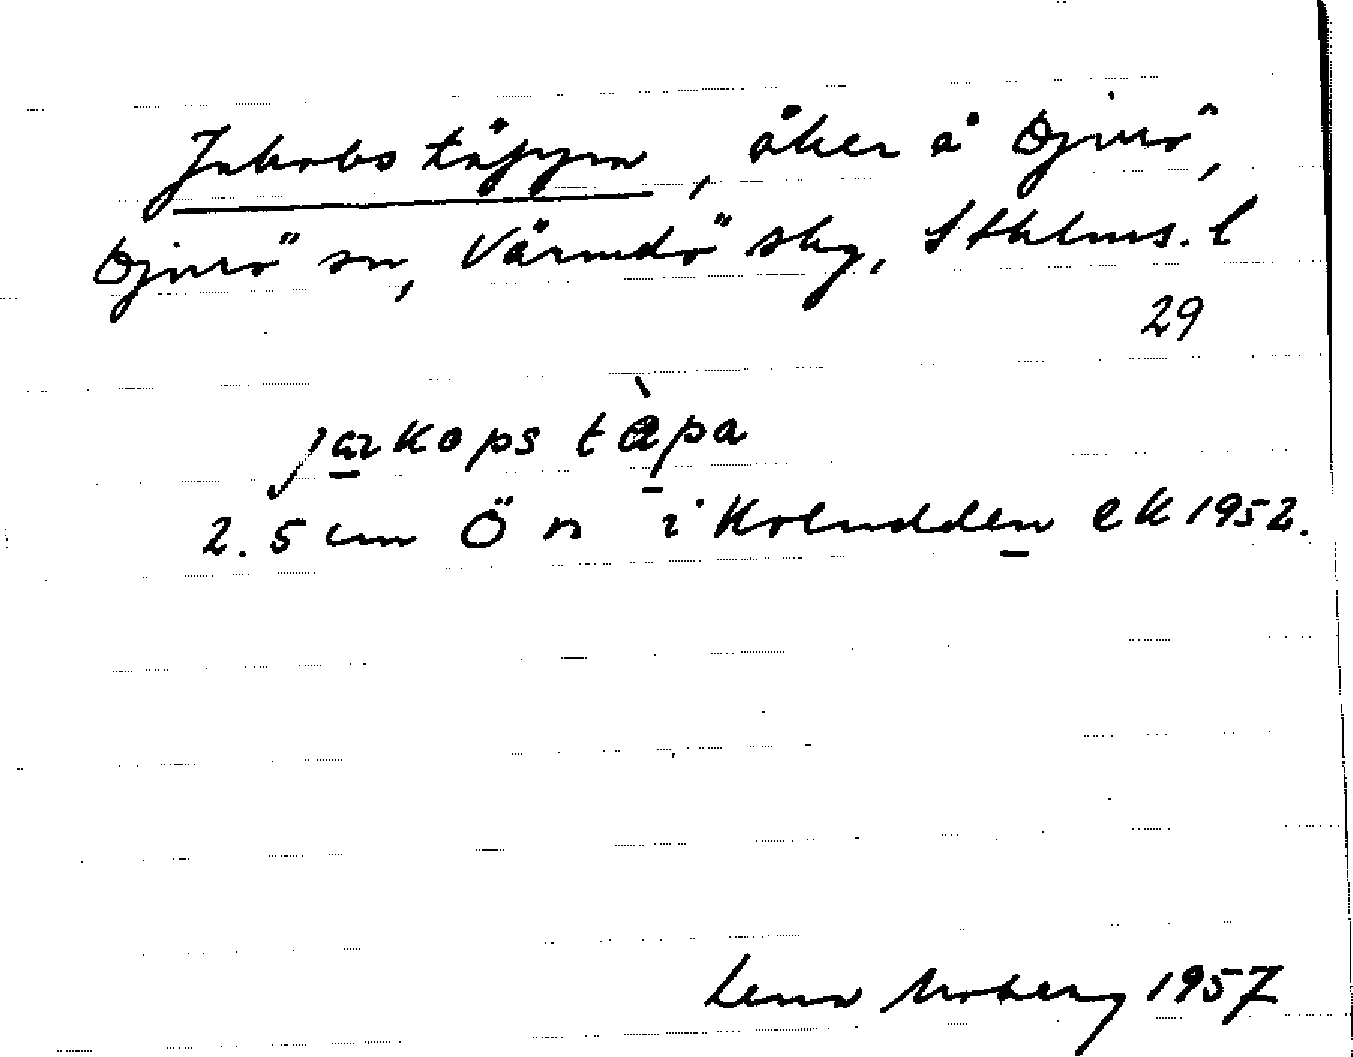 Jakobs täppa, åker å Djurö,
Djurö sn, Värmdö skg, Sthlms. l
29
jaꝛkops tæ̀pa
2.5 cm Ö n i Koludden ek 1952.
Lena Moberg 1957